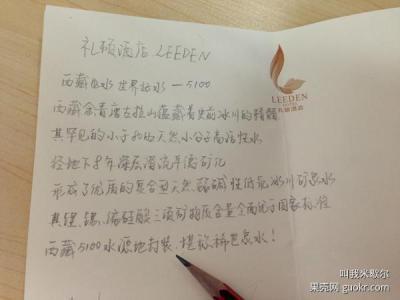 礼顿酒店 LEEDEN
LEEDEN
HOTEL
礼頓酒店
西藏好水 世界好水 — 5100
西藏念青唐古拉山蕴藏着史前冰川的精髓
其罕见的小于 的天然小分子高活性水
经地下 年深层潜流平衡矿化
形成了优质的复合型天然弱碱性低氘冰川矿泉水
其锂、锶、偏硅酸三项矿物质含量全面优于国家标准
西藏5100水源地封装、堪称稀世泉水!
叫我米歇尔
果壳网 guokr.com